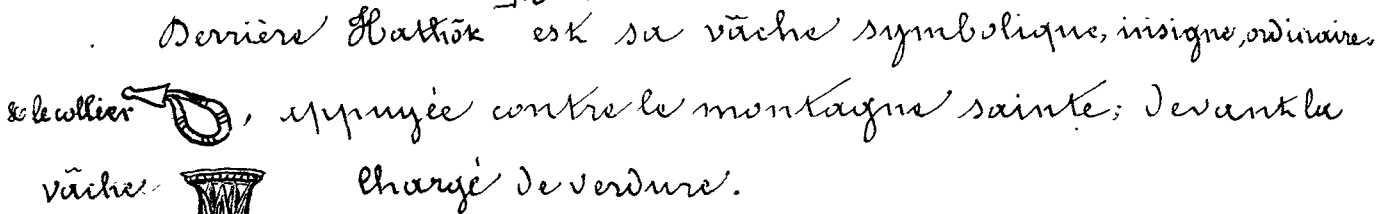 Derrière Hathôr est sa vâche symbolique, insigne, ordinaire,
& le collier, appuyée contre le montagne sainte; devant la
vâche chargé de verdure.